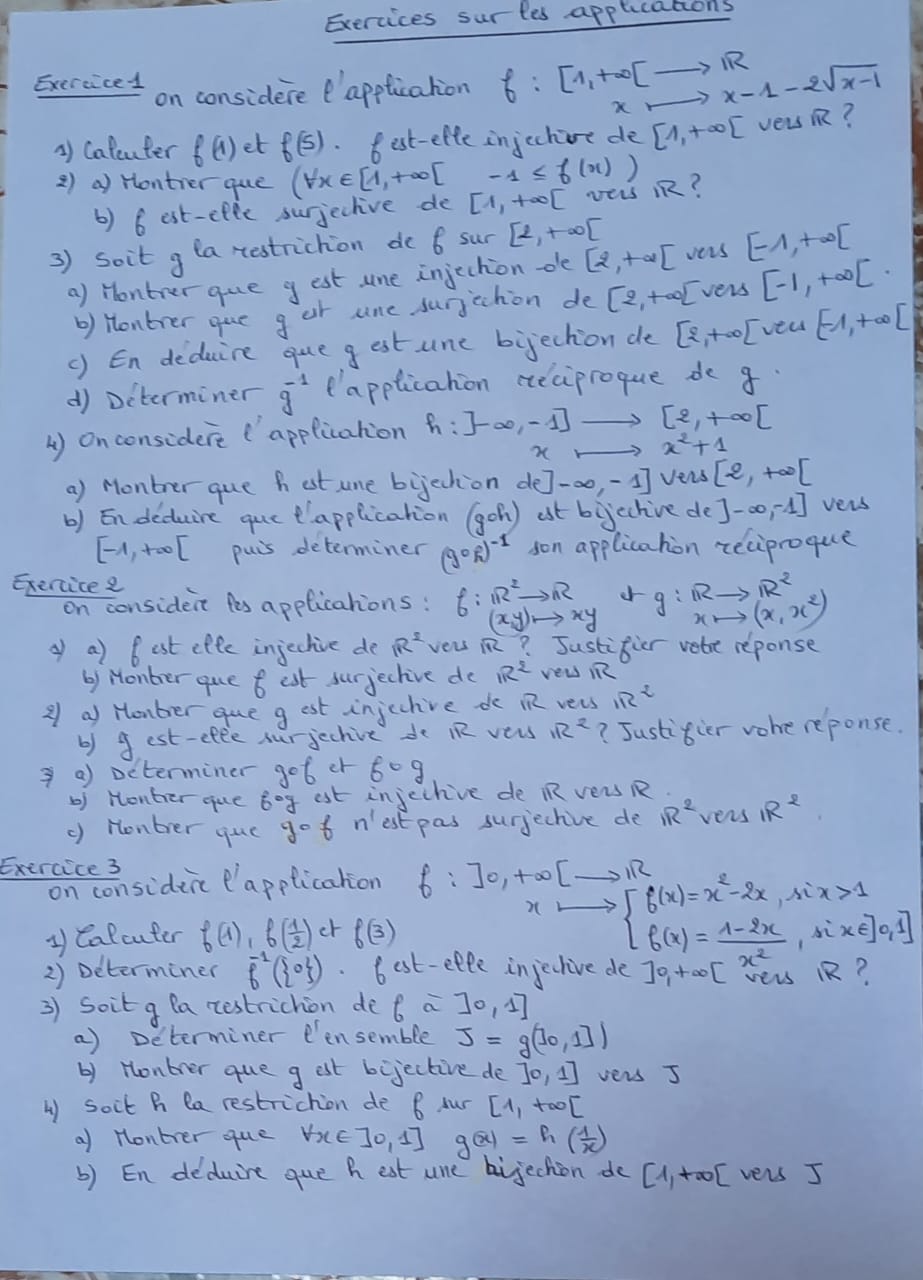 Exercices sur les applications
Exercice 1
on considère l'application f : [1,+∞[ ⟶ ℝ
x ⟼ x-1-2√(x-1)
1) Calculer f(1) et f(5). f est-elle injective de [1,+∞[ vers ℝ ?
2) a) Montrer que (∀x∈[1,+∞[ -1 ≤ f(x))
b) f est-elle surjective de [1,+∞[ vers ℝ ?
3) Soit g la restriction de f sur [2,+∞[
a) Montrer que g est une injection de [2,+∞[ vers [-1,+∞[
b) Montrer que g est une surjection de [2,+∞[ vers [-1,+∞[.
c) En déduire que g est une bijection de [2,+∞[ vers [-1,+∞[
d) Déterminer g⁻¹ l'application réciproque de g.
4) On considère l'application h : ]-∞,-1] ⟶ [2,+∞[
x ⟼ x²+1
a) Montrer que h est une bijection de ]-∞,-1] vers [2,+∞[
b) En déduire que l'application (goh) est bijective de ]-∞,-1] vers
[-1,+∞[ puis déterminer (goh)⁻¹ son application réciproque
Exercice 2
on considère les applications : f : ℝ²→ℝ et g : ℝ→ℝ²
(xy)⟼xy x⟼(x,x²)
1) a) f est elle injective de ℝ² vers ℝ ? Justifier votre réponse
b) Montrer que f est surjective de ℝ² vers ℝ
2) a) Montrer que g est injective de ℝ vers ℝ²
b) g est-elle surjective de ℝ vers ℝ² ? Justifier votre réponse.
3 a) Déterminer gof et fog
b) Montrer que fog est injective de ℝ vers ℝ.
c) Montrer que gof n'est pas surjective de ℝ² vers ℝ².
Exercice 3
on considère l'application f : ]0,+∞[ ⟶ ℝ
x ⟼ { f(x) = x²-2x, si x>1
f(x) = (1-2x)/x², si x∈]0,1]
1) Calculer f(1), f(1/2) et f(3)
2) Déterminer f⁻¹({0}). f est-elle injective de ]0,+∞[ vers ℝ ?
3) Soit g la restriction de f à ]0,1]
a) Déterminer l'ensemble J = g(]0,1])
b) Montrer que g est bijective de ]0,1] vers J
4) Soit h la restriction de f sur [1,+∞[
a) Montrer que ∀x∈]0,1] g(x) = h(1/x)
b) En déduire que h est une bijection de [1,+∞[ vers J